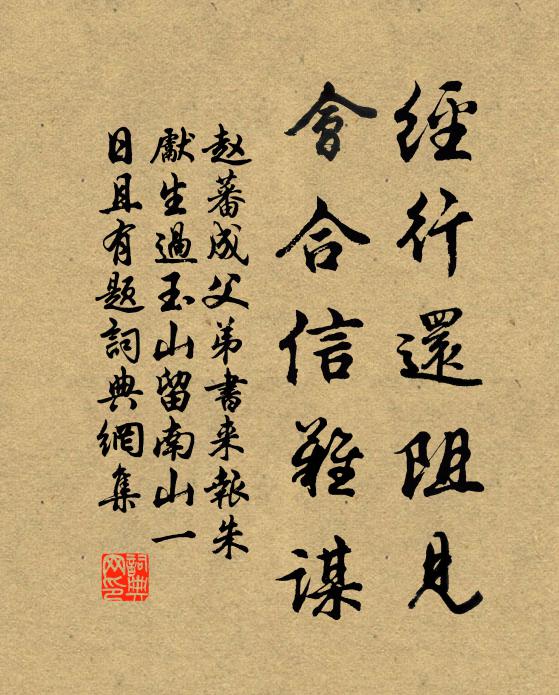 經行還阻見
會合信難謀
赵蕃成父弟書来報朱
獻生過玉山留南山一
日且有题詞典網集
詞典
网印